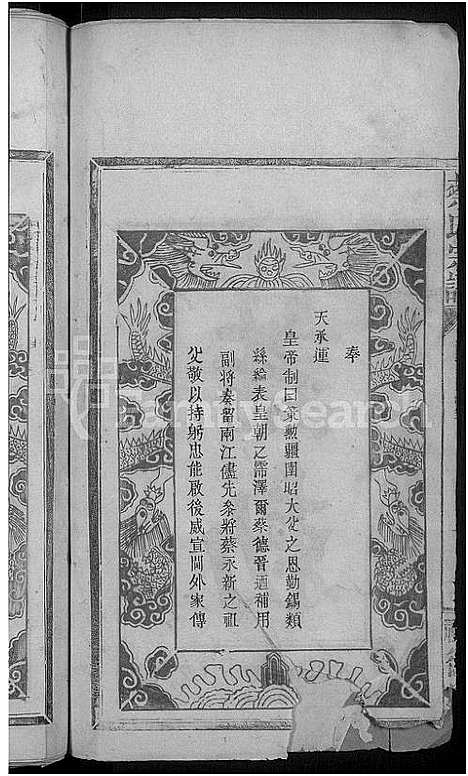 奉
天承運
皇帝制曰策勲疆圉昭大父之恩勤錫類
絲綸表皇朝之霈澤爾蔡德晉迺補用
副將奏留兩江儘先叅將蔡永新之祖
父敬以持躬忠能啟後威宣閫外家傳
蔡氏宗譜
FamilySearch